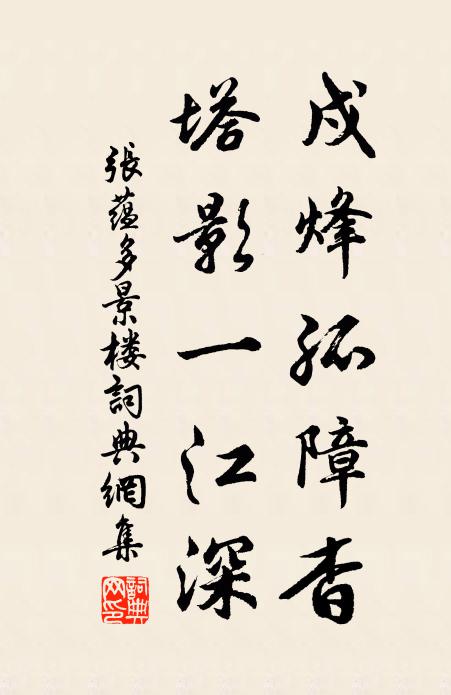 戍烽孤障杳
塔影一江深
張蘊多景楼詞典網集
詞典网印